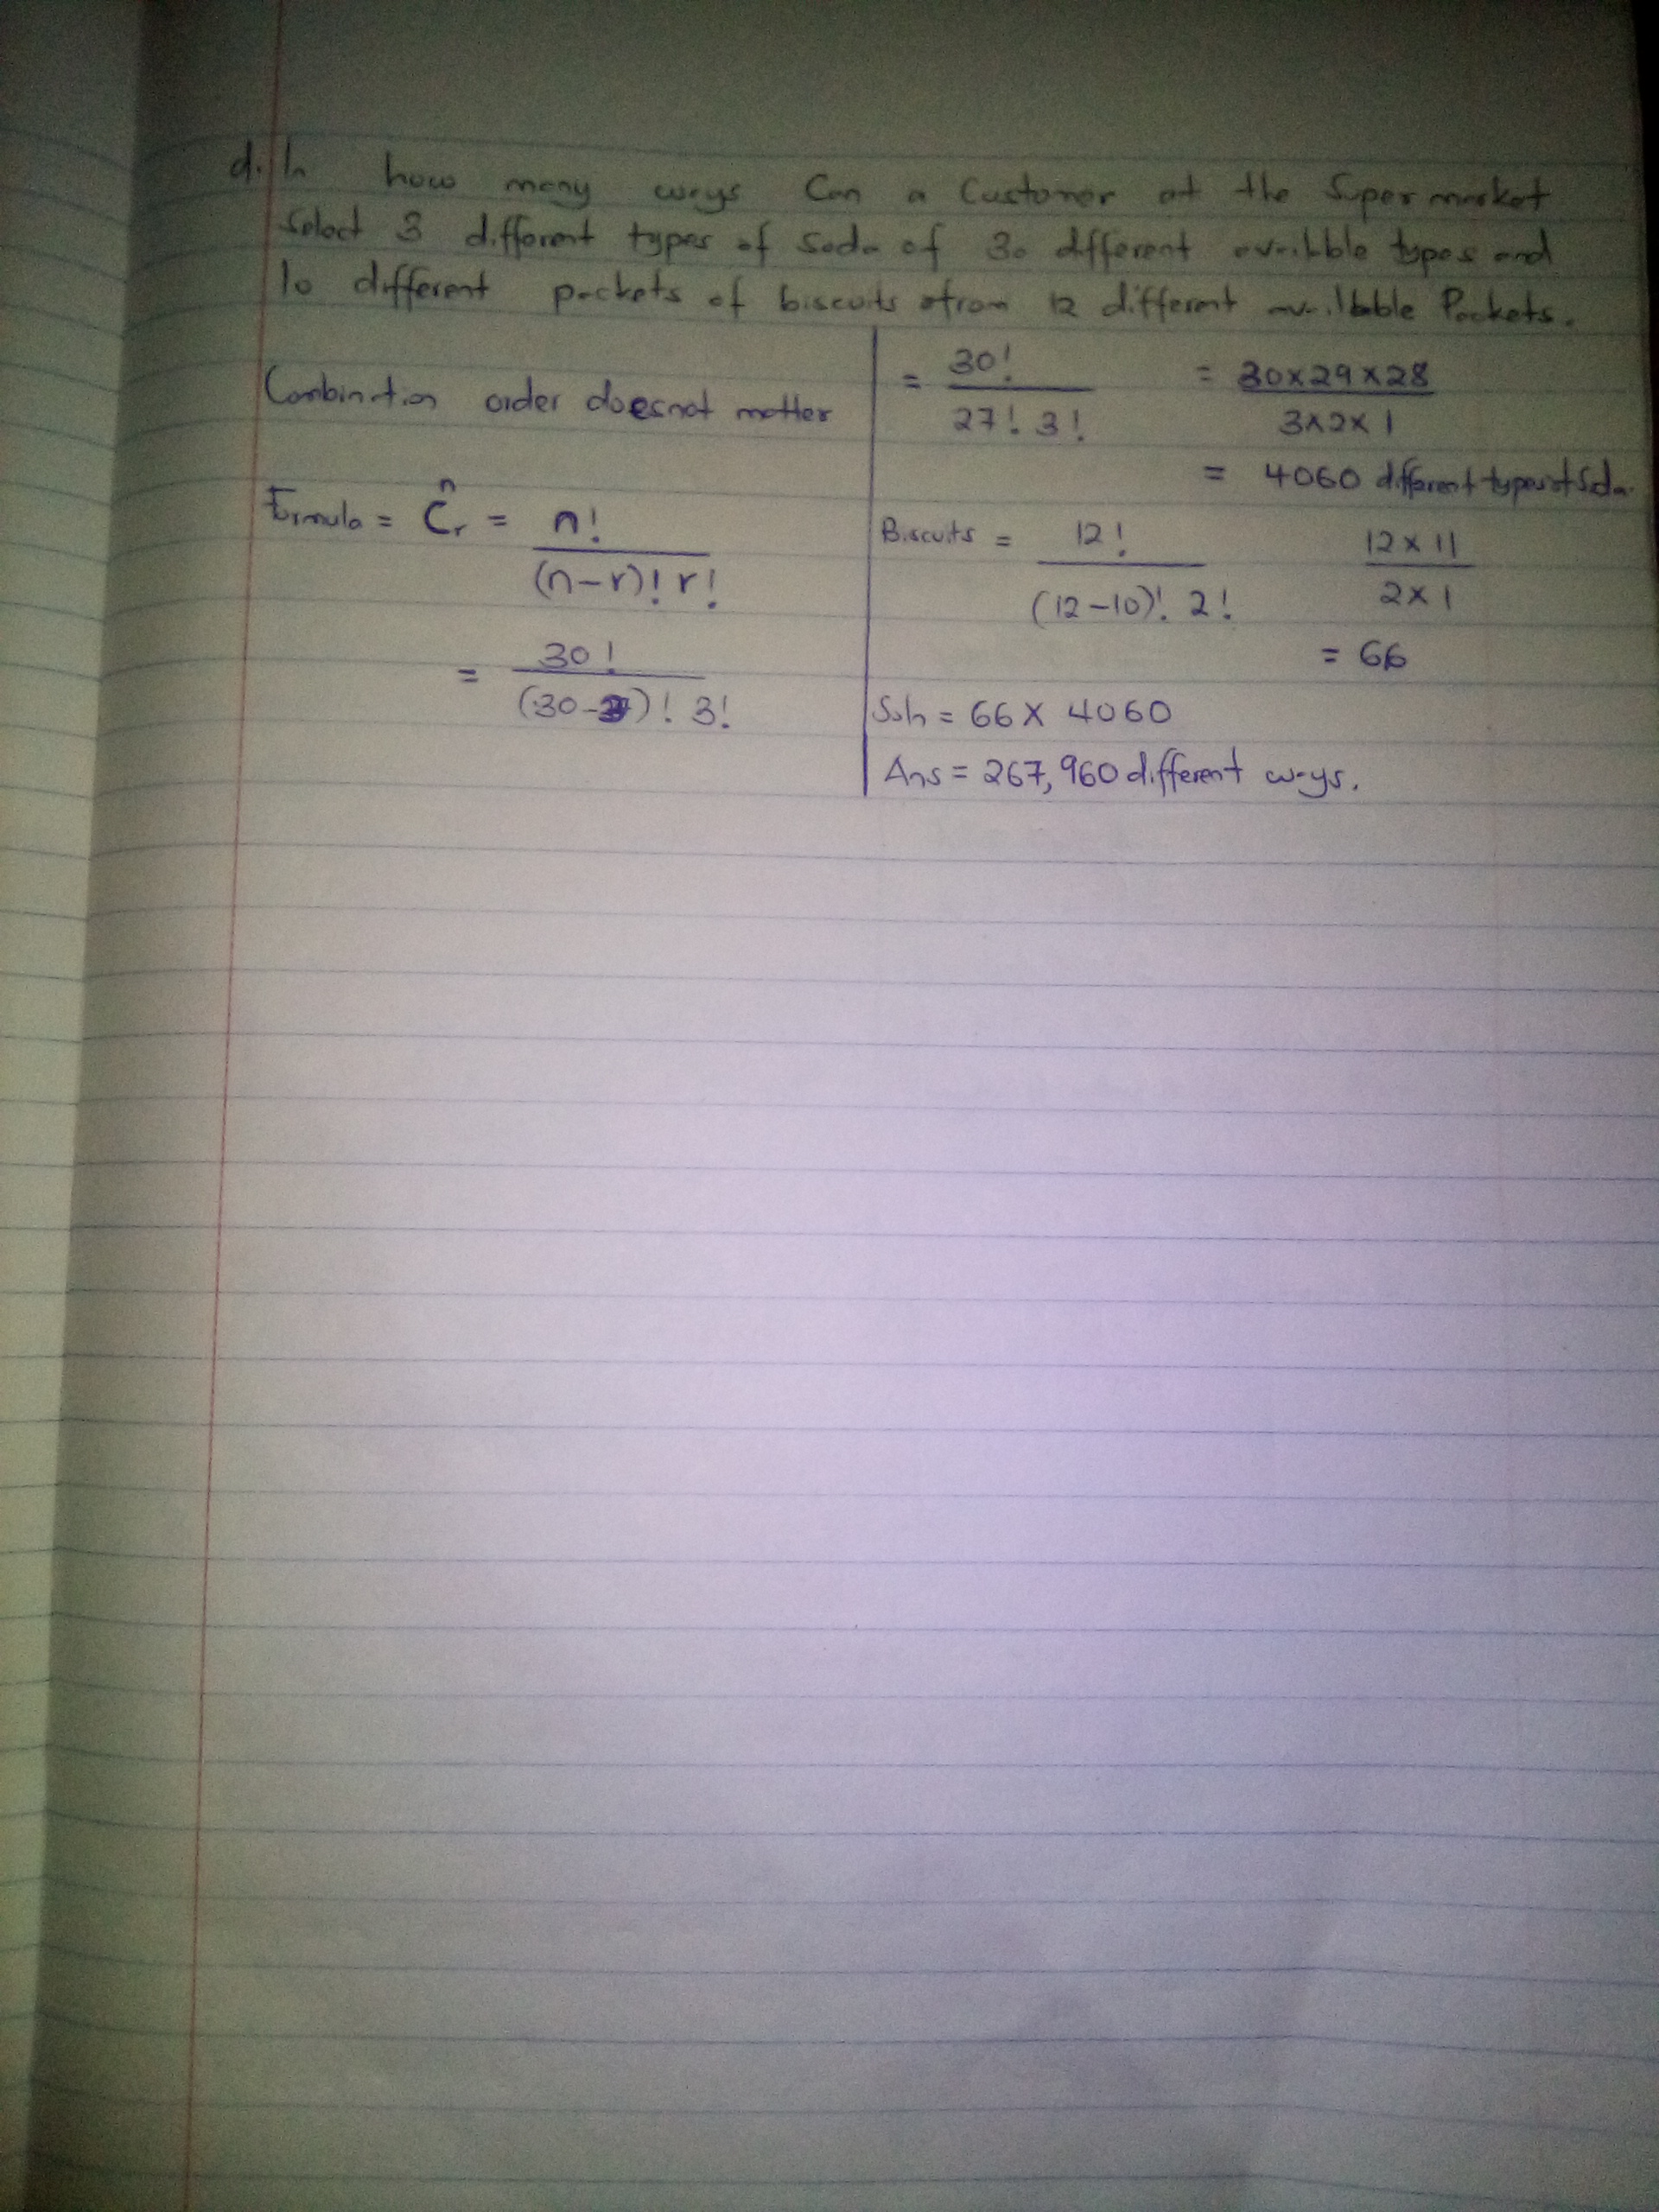 d. In how many ways Can a Customer at the Supermarket
Select 3 different types of Soda of 30 dfferent availble types and
10 different packets of biscuits from 12 different availabble Packets.
Combination order doesnot matter
Formula = ⁿCᵣ = n!
(n-r)! r!
= 30!
(30-3)! 3!
= 30! = 30x29x28
27! 3! 3x2x1
= 4060 different types of Soda.
Biscuits = 12! 12 x 11
(12-10)! 2! 2 x 1
= 66
Soln = 66 X 4060
Ans = 267,960 different ways.